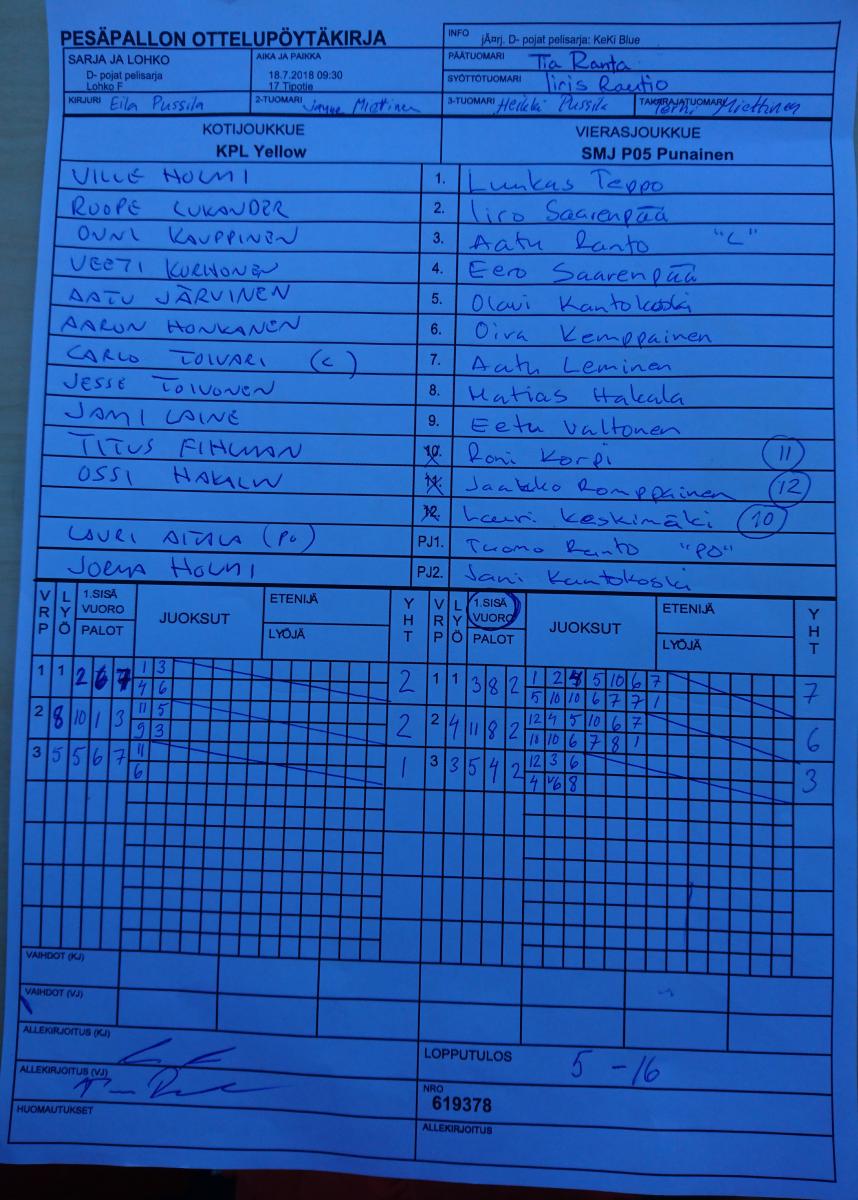 PESÄPALLON OTTELUPÖYTÄKIRJA
INFO
jÃ¤rj. D- pojat pelisarja: KeKi Blue
SARJA JA LOHKO
D- pojat pelisarja
Lohko F
AIKA JA PAIKKA
18.7.2018 09:30
17 Tipotie
PÄÄTUOMARI Tia Ranta
SYÖTTÖTUOMARI Iiris Rautio
KIRJURI Eila Pussila
2-TUOMARI Miettinen
3-TUOMARI Heikki Pussila
TAKARAJATUOMARI Miettinen
KOTIJOUKKUE
KPL Yellow
VIERASJOUKKUE
SMJ P05 Punainen
VILLE HOLMI 1. Luukas Teppo
ROOPE LUKANDER 2. Iiro Saarenpää
ONNI KAUPPINEN 3. Aatu Ranto "C"
VEETI KORHONEN 4. Eero Saarenpää
AATU JÄRVINEN 5. Olavi Kantokoski
AARON HONKANEN 6. Oiva Kemppainen
CARLO TOIVARI (C) 7. Aatu Leminen
JESSE TOIVONEN 8. Matias Hakala
JAMI LAINE 9. Eetu Valtonen
TITUS FIHLMAN 10. Roni Korpi 11
OSSI 11. Jaakko Romppainen 12
12. Lauri Keskimäki 10
LAURI AITALA (PO) PJ1. Tuomo Ranto "PO"
JORMA HOLMI PJ2. Jani Kantokoski
VRP LYÖ 1.SISÄ VUORO PALOT JUOKSUT ETENIJÄ LYÖJÄ YHT VRP LYÖ 1.SISÄ VUORO PALOT JUOKSUT ETENIJÄ LYÖJÄ YHT
1 1 2 6 7 1 3 2 1 1 3 8 2 1 2 4 5 10 6 7 7
4 6 5 10 10 6 7 7 1
2 8 10 1 3 11 5 2 2 4 11 8 2 12 4 5 10 6 7 6
9 3 10 10 6 7 8 1
3 5 5 6 7 11 1 3 3 5 4 2 12 3 6 3
6 4 6 8
VAIHDOT (KJ)
VAIHDOT (VJ)
ALLEKIRJOITUS (KJ)
LOPPUTULOS 5 - 16
ALLEKIRJOITUS (VJ)
NRO
619378
HUOMAUTUKSET
ALLEKIRJOITUS